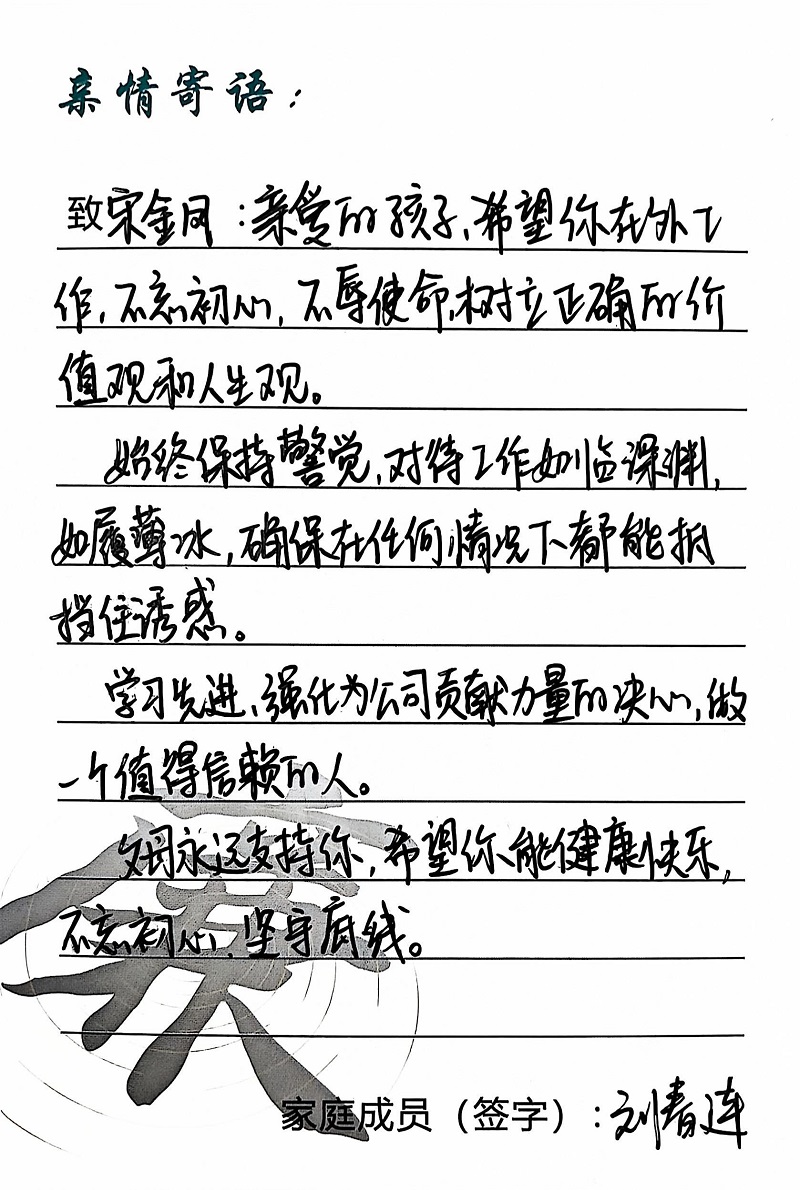 亲情寄语：
致宋金凤：亲爱的孩子，希望你在外工
作，不忘初心，不辱使命，树立正确的价
值观和人生观。
始终保持警觉，对待工作如临深渊，
如履薄冰，确保在任何情况下都能抵
挡住诱惑。
学习先进、强化为公司贡献力量的决心，做
一个值得信赖的人。
父母永远支持你，希望你能健康快乐，
不忘初心、坚守底线。
家庭成员（签字）：刘春连